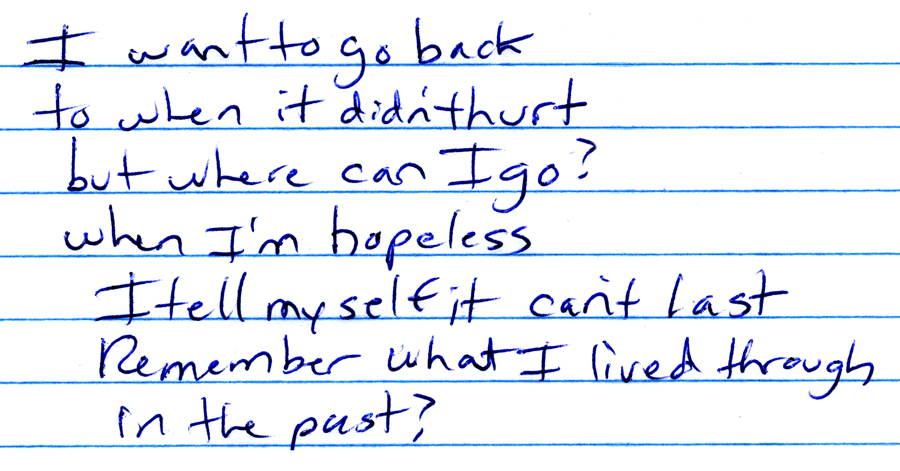 I want to go back
to when it didn't hurt
but where can I go?
when I'm hopeless
I tell myself it can't last
Remember what I lived through
in the past?